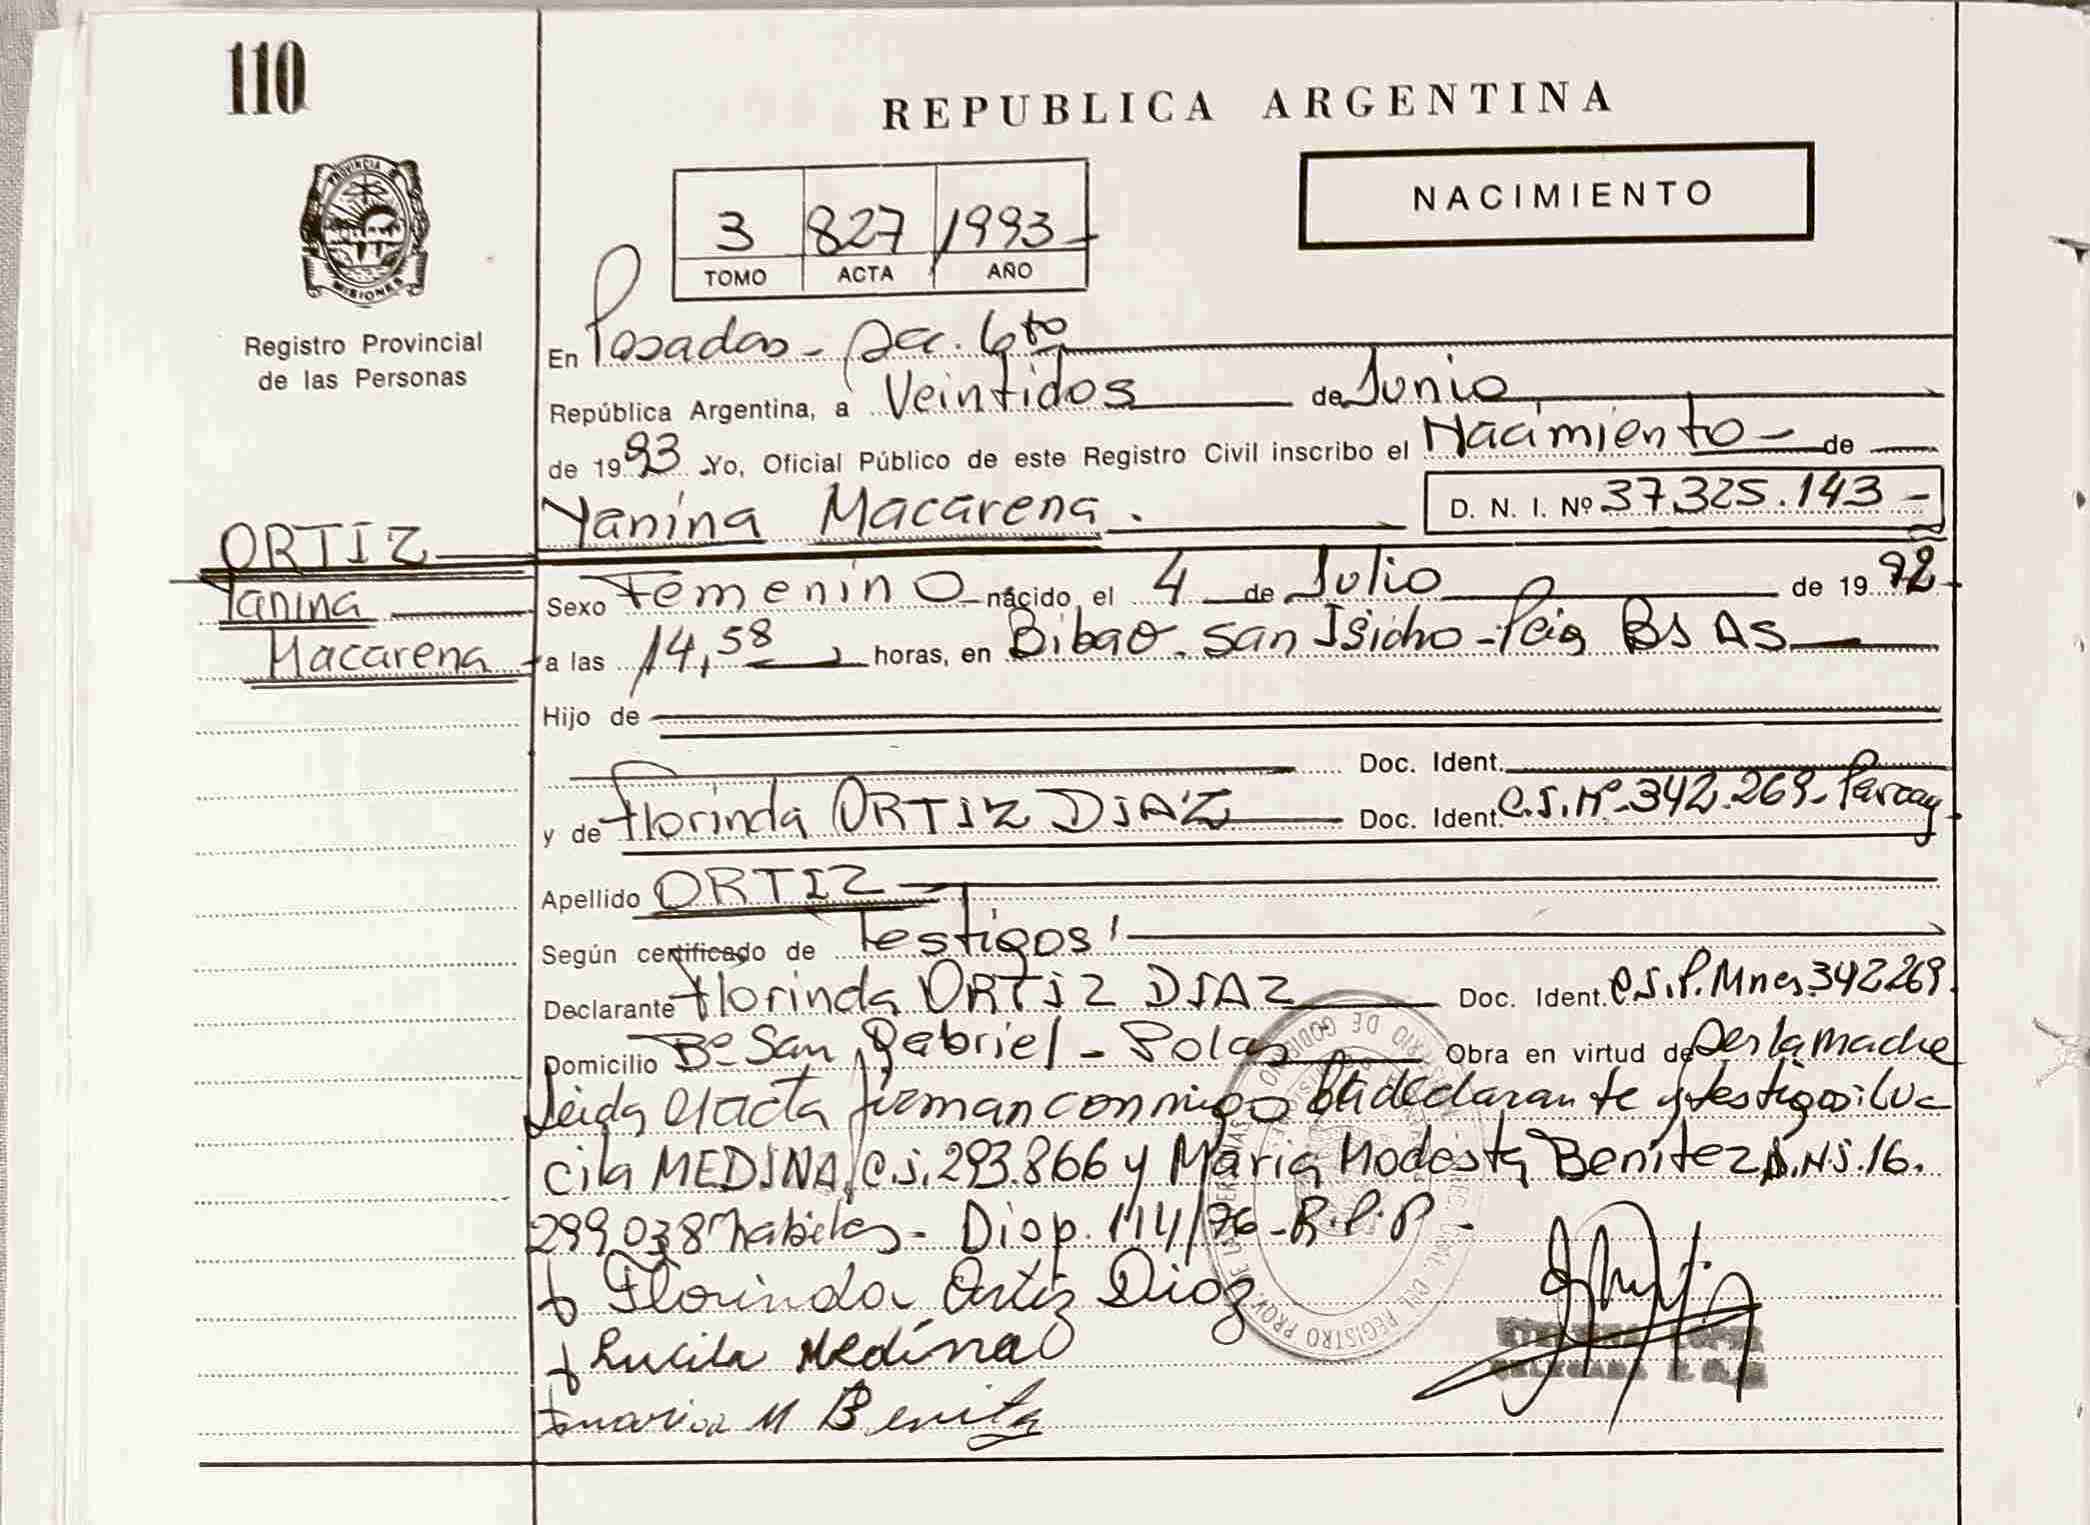 110
REPUBLICA ARGENTINA
NACIMIENTO
3 827 1993
TOMO ACTA AÑO
PROVINCIA DE
MISIONES
Registro Provincial
de las Personas
En Posadas - Sec. 6ta
República Argentina, a Veintidos de Junio
de 1993 Yo, Oficial Público de este Registro Civil inscribo el Nacimiento - de
Yanina Macarena. D. N. I. Nº 37.325.143 -
ORTIZ
Yanina
Macarena
Sexo Femenino nacido el 4 de Julio de 1992
a las 14,58 horas, en Bibao - San Isidro - Pcia Bs As
Hijo de
Doc. Ident.
y de Florinda ORTIZ DIAZ Doc. Ident. C.I. Nº 342.269 -
Apellido ORTIZ
Según certificado de Testigos
Declarante Florinda ORTIZ DIAZ Doc. Ident. C.I.P. Mnes 342269
Domicilio Bº San Gabriel - Pdas Obra en virtud de Ser la madre
Leida el acta firman conmigo la declarante y testigos: Lu-
cila MEDINA C.I. 293.866 y Maria Modesta Benitez D.N.I. 16.
299.038 habiles - Disp. 114/76 - R.P.P -
Florinda Ortiz Diaz
Lucila Medina
maria M Benitez
REGISTRO PROV. DE LAS PERSONAS